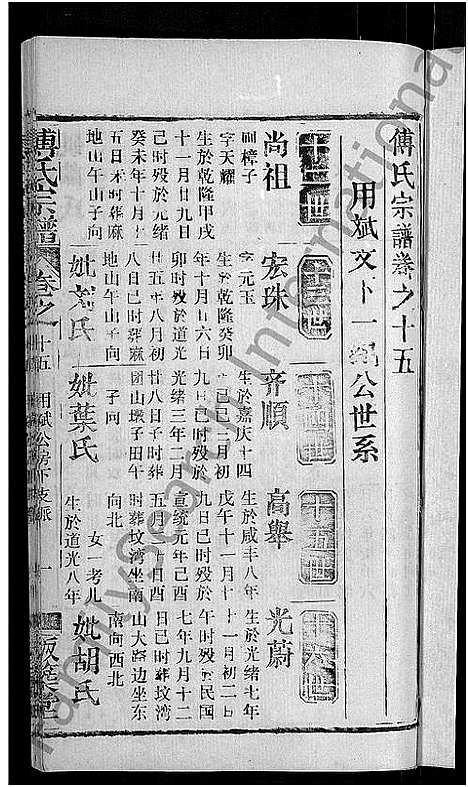 傅氏宗譜卷之十五
用斌文卜一公世系
十二世
尚祖
嗣樟子
字天耀
生於乾隆甲戌
十一月廿九日
己時歿於光緒
癸未年十月十
五日未時葬麻
地山午山子向
十三世
宏珠
字元玉
生於乾隆癸卯
年十月廿六日
卯時歿於道光
廿五年八月初
八日巳時葬麻
地山午山子向
妣氏
十四世
齐順
生於嘉庆十四
年己巳三月初
九日巳時歿於
光緒三年二月
廿八日子時葬
团山墩子田午
子向
妣葉氏
十五世
高舉
生於咸丰八年
戊午十一月十
九日巳時歿於
宣統元年己酉
五月廿日酉
時葬坟湾坐南
向北
女一考儿
生於道光八年
十六世
光蔚
生於光緒七年
十一月初二日
午時歿於民国
七年九月十二
日巳時葬坟湾
山大路边坐东
南向西北
妣胡氏
傅氏宗譜
卷之十五
用斌公房下支派
一
版築堂
familysearch International